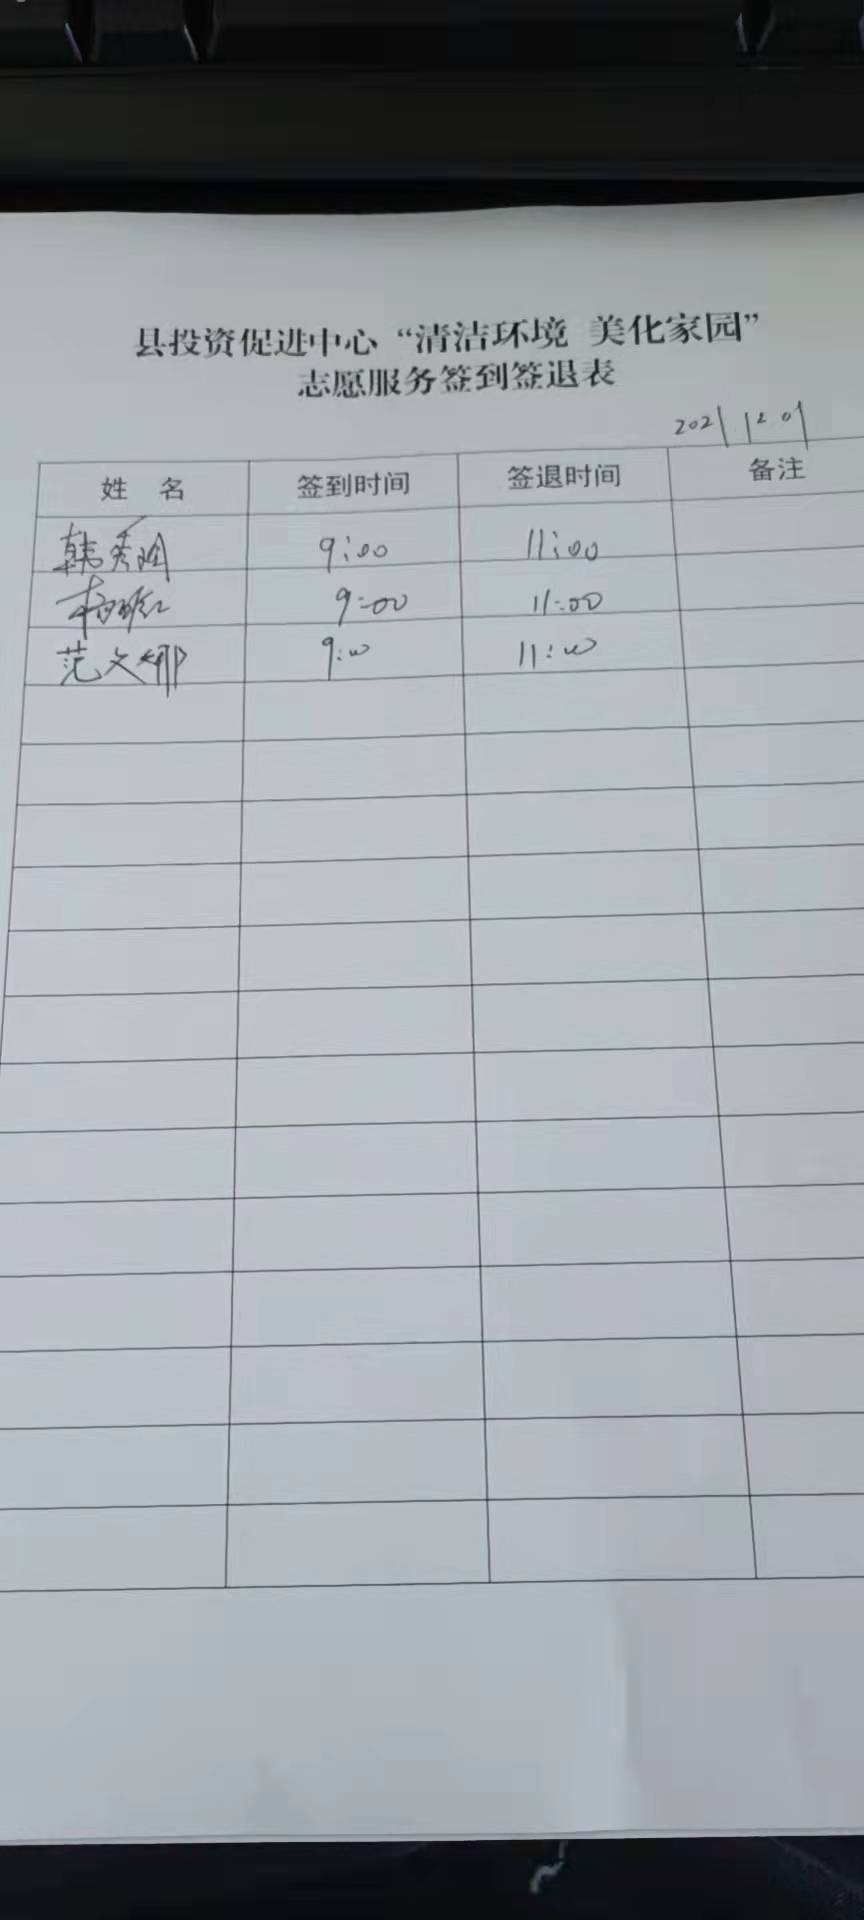 县投资促进中心“清洁环境 美化家园”
志愿服务签到签退表
2021 12 01
姓 名 签到时间 签退时间 备注
韩秀 9:00 11:00
9:00 11:00
范文娜 9:00 11:00